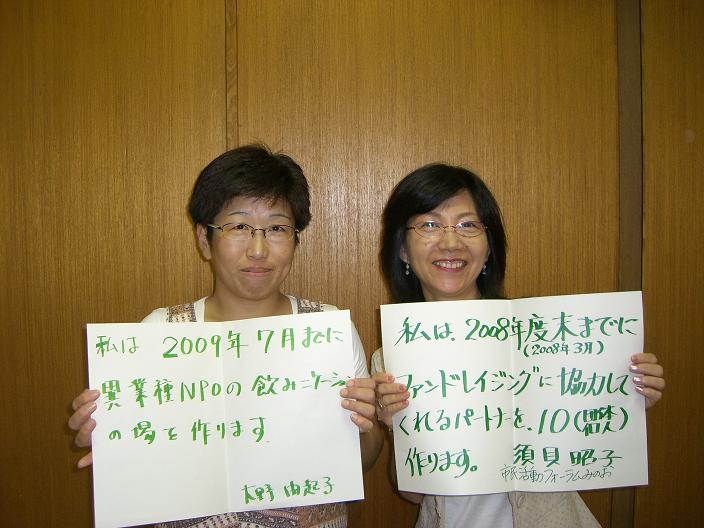 私は 2009年7月までに
異業種NPOの飲みニケーション
の場を作ります
大野 由起子
私は、2008年度末までに
(2008年3月)
ファンドレイジングに協力して
くれるパートナーを、10(団体)
作ります。 須貝 昭子
市民活動フォーラムみのお